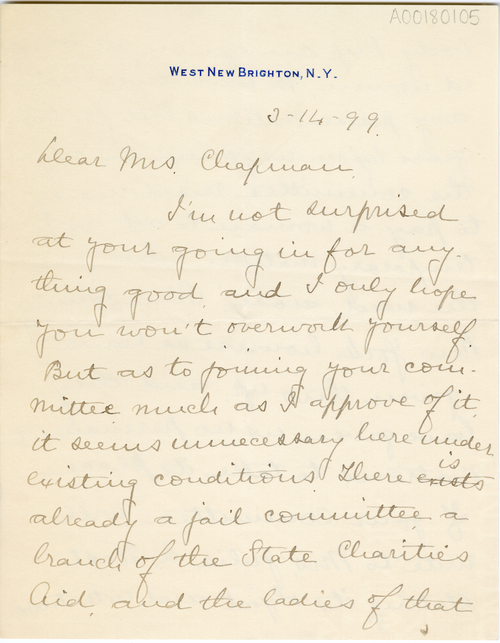 A00180105
WEST NEW BRIGHTON, N.Y.
3-14-99.
Dear Mrs. Chapman.
I'm not surprised
at your going in for any-
thing good and I only hope
you won't overwork yourself.
But as to joining your com-
mittee much as I approve of it
it seems unnecessary here under
is
existing conditions There exists
already a jail committee a
branch of the State Charities
Aid, and the ladies of that